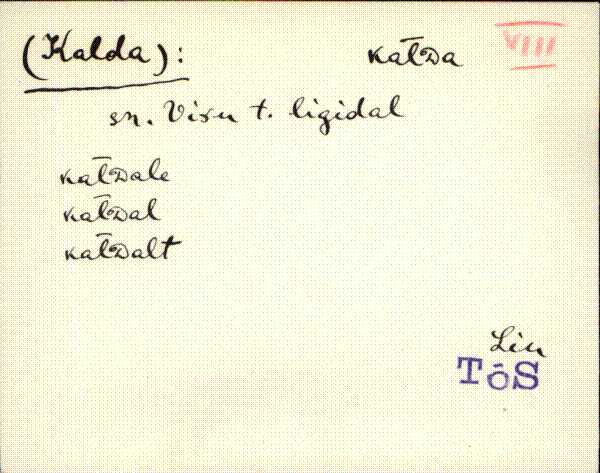 (Kalda): kat̄ᴅa VIII
sn. Viru t. ligidal
kat̄ᴅale
kat̄ᴅal
kat̄ᴅalt
Lin
TõS